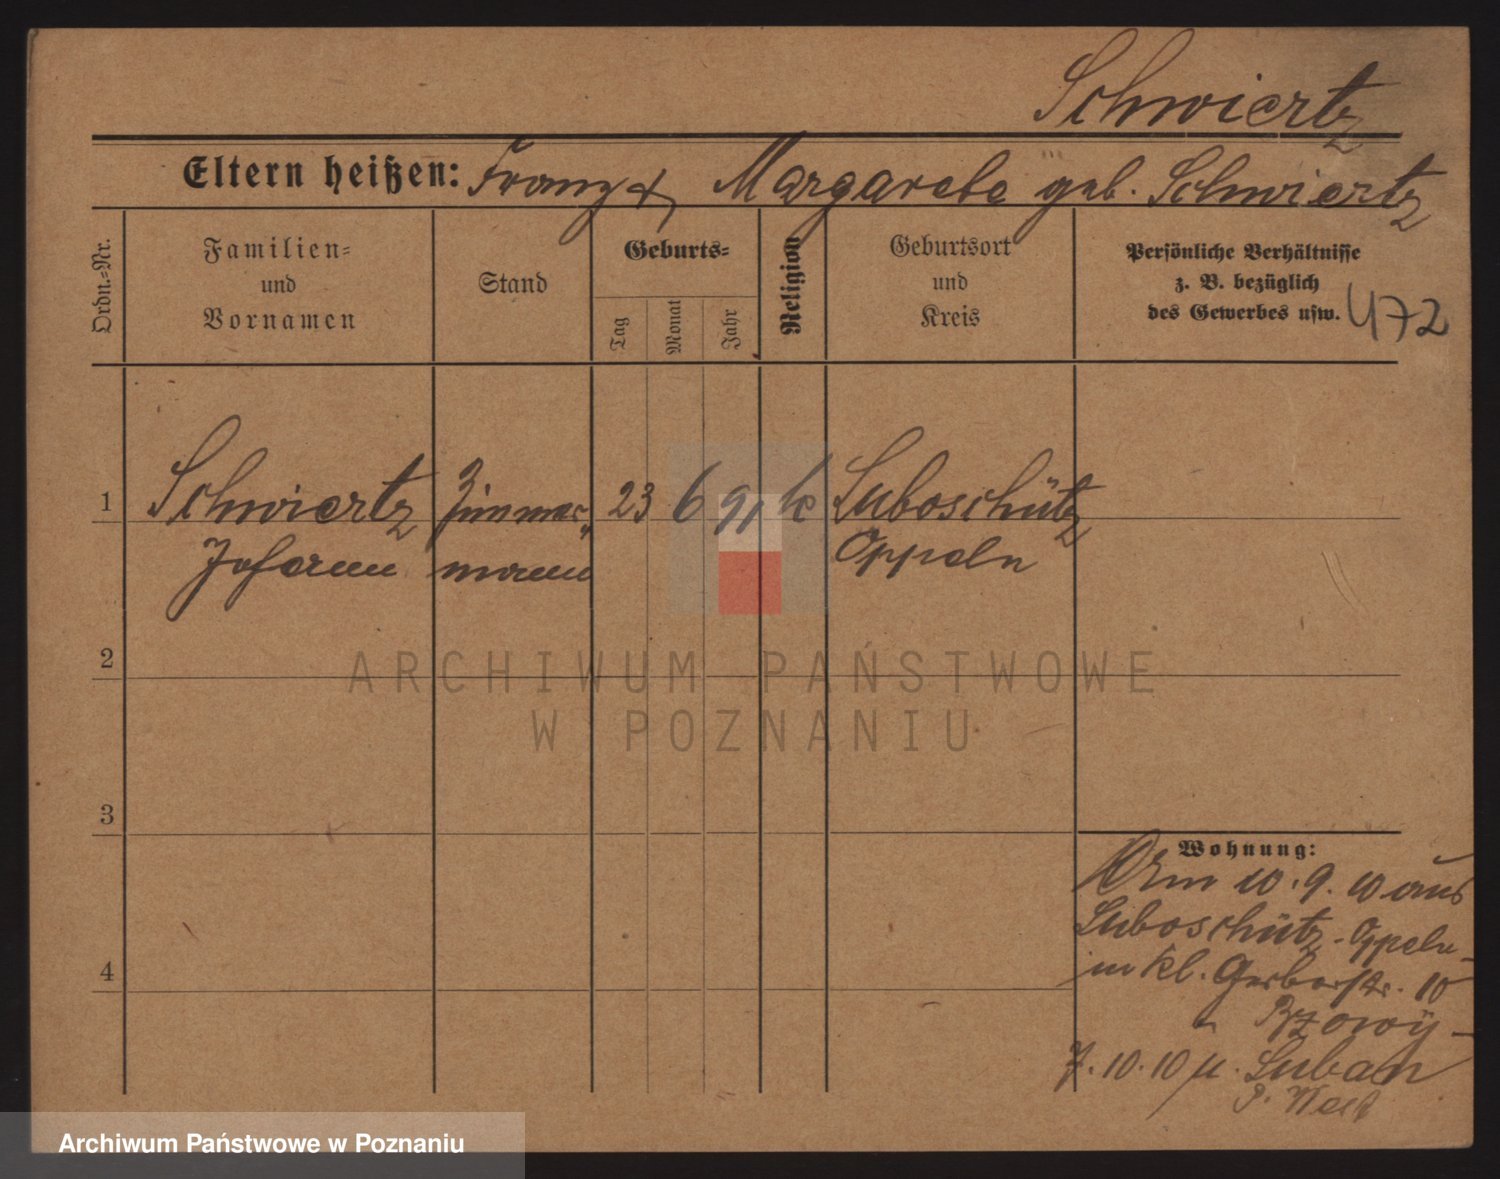 Schwiertz
Eltern heißen: Franz & Margarete geb. Schwiertz
Ordn.-Nr.
Familien- und Vornamen
Stand
Geburts-
Tag
Monat
Jahr
Religion
Geburtsort und Kreis
Persönliche Verhältnisse
z. B. bezüglich
des Gewerbes usw.
472
1 Schwiertz Zimmer- 23 6 91 k Luboschütz
Johann mann Oppeln
2
3
4
Wohnung:
10.9.10 aus
Luboschütz-Oppeln
in kl. Gerberstr. 10
7.10.10 Luban
P. West
ARCHIWUM PAŃSTWOWE
W POZNANIU
Archiwum Państwowe w Poznaniu